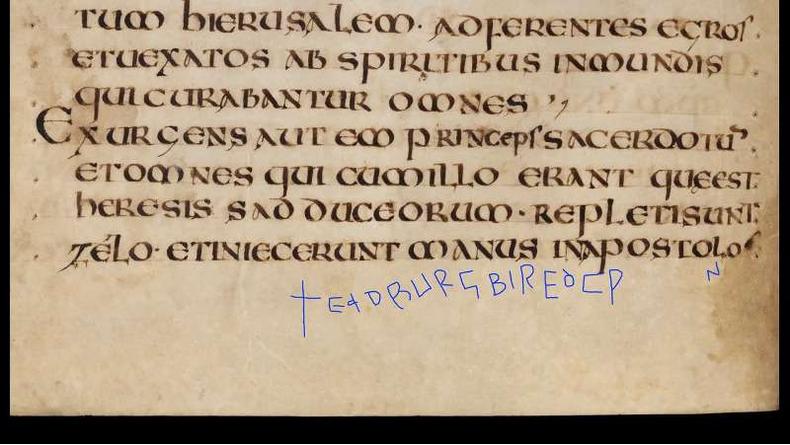 TUM hIERUSALEM · ADFERENTES EGROS.
ETUEXATOS AB SPIRITIBUS INMUNDIS
QUICURABANTUR OMNES ',
EXURGENS AUTEM PRINCEPS SACERDOTŪ
ETOMNES QUI CUMILLO ERANT QUĘEST.
hERESIS SADDUCEORUM · REPLETISUNT.
ZÉLO · ETINIECERUNT MANUS INAPOSTOLOS.
+EADBURGBIREÐCP N